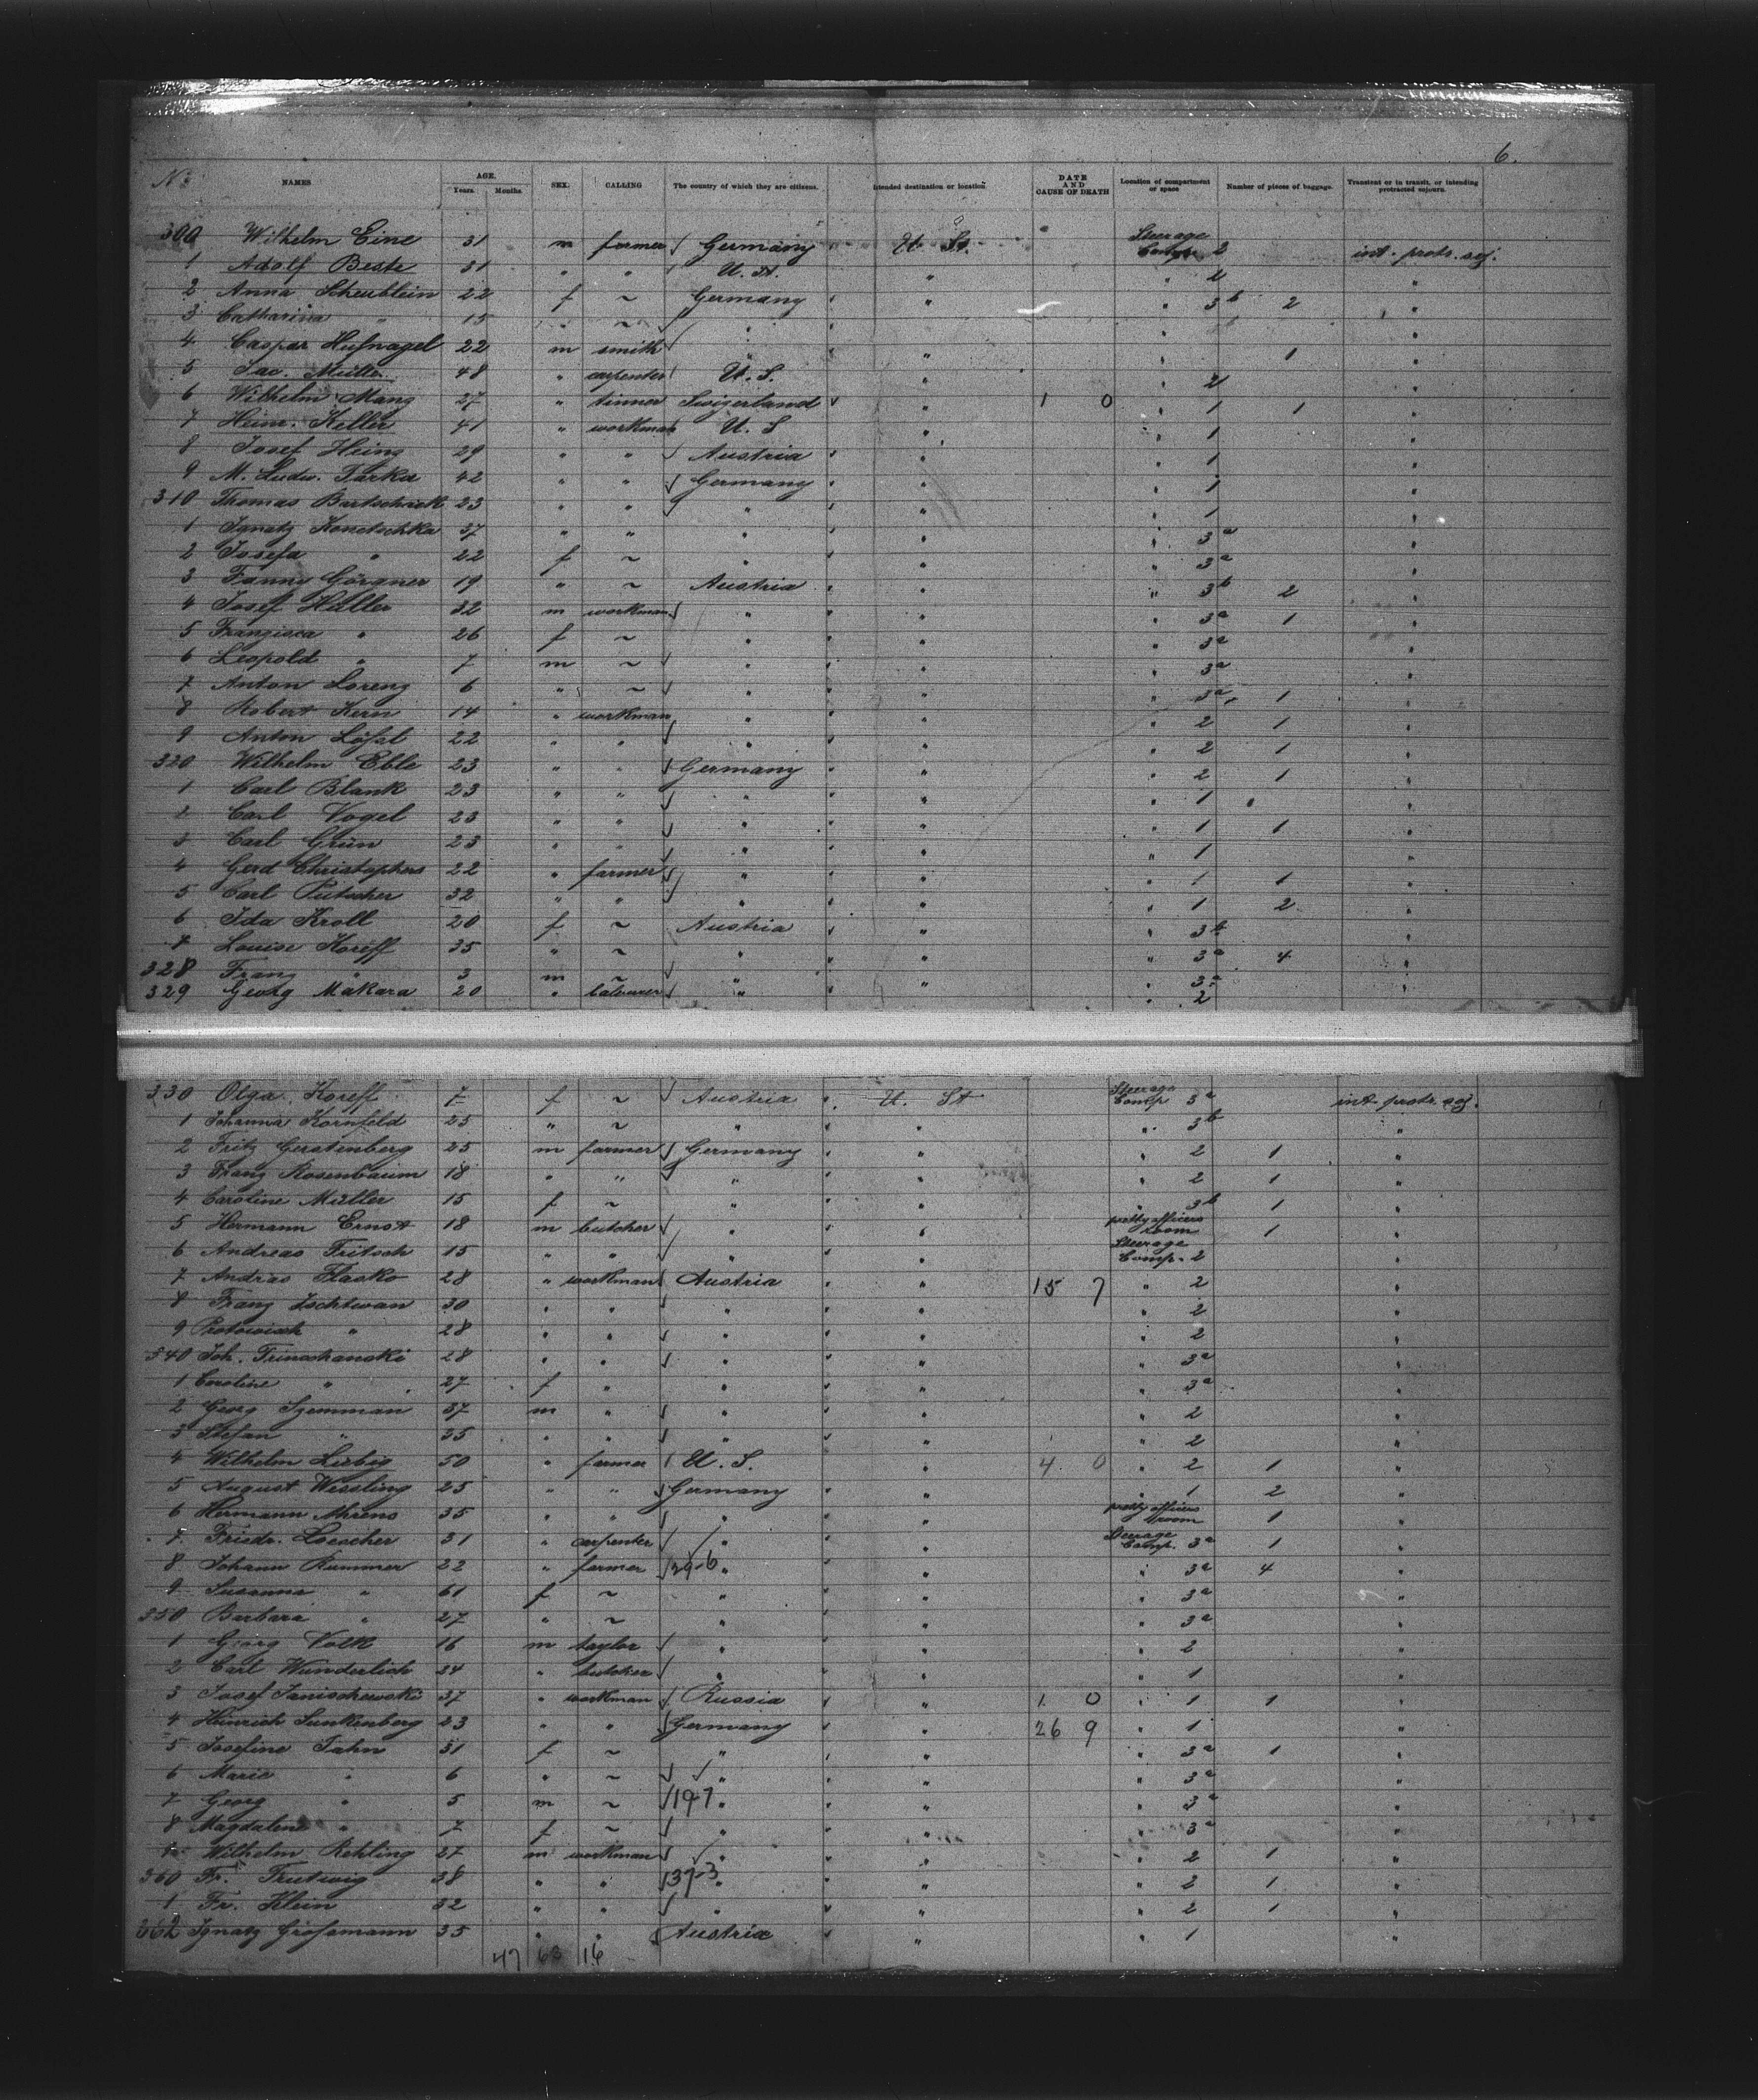 6.
No NAMES AGE. Years. Months. SEX. CALLING The country of which they are citizens. Intended destination or location DATE AND CAUSE OF DEATH Location of compartment or space Number of pieces of baggage. Transient or in transit, or intending protracted sojourn.
300 Wilhelm Eine 31 m farmer Germany U. St. Steerage Comp. 2 int. protr. soj.
1 Adolf Beste 31 " " U. St. " " 2 "
2 Anna Scheublein 22 f ~ Germany " " 3b 2 "
3 Catharina " 15 " ~ " "
4 Caspar Hufnagel 22 m smith " " " 1 "
5 Jac. Müller 48 " carpenter U. S. " " 2 "
6 Wilhelm Mang 27 " tinner Swizerland " 1 0 " 1 1 "
7 Heinr. Keller 41 " workman U. S " " 1 "
8 Josef Heinz 29 " " Austria " " 1 "
9 M. Ludw. Farka 42 " " Germany " " 1 "
310 Thomas Bartschick 23 " " " " " 1 "
1 Ignatz Konetschka 37 " " " " " 3a "
2 Josefa " 22 f ~ " " " 3a "
3 Fanny Görgner 19 " ~ Austria " " 3b 2 "
4 Josef Haller 32 m workman " " " 3a 1 "
5 Franzisca " 26 f ~ " " " 3a "
6 Leopold " 7 m ~ " " " 3a "
7 Anton Lorenz 6 " ~ " " " 3a 1 "
8 Robert Kern 14 " workman " " " 2 1 "
9 Anton Löfal 22 " " " " " 2 1 "
320 Wilhelm Eble 23 " " Germany " " 2 1 "
1 Carl Blank 23 " " " " " 1 "
2 Carl Vogel 23 " " " " " 1 1 "
3 Carl Grün 23 " " " " " 1 "
4 Gerd Christophers 22 " farmer " " " 1 1 "
5 Carl Putscher 32 " " " " " 1 2 "
6 Ida Kroll 20 f ~ Austria " " 3b "
7 Louise Koreff 35 " ~ " " " 3a 4 "
328 Franz " 3 m ~ " " " 3a "
329 Georg Makara 20 " labourer " " " 2
330 Olga Koreff 7 f ~ Austria U. St Steerage Comp 3a int. protr. soj.
1 Johanna Kornfeld 25 " ~ " " " 3b "
2 Fritz Gerstenberg 25 m farmer Germany " " 2 1 "
3 Franz Rosenbaum 18 " " " " " 2 1 "
4 Caroline Müller 15 f ~ " " " 3b 1 "
5 Hermann Ernst 18 m butcher " " petty officers room 1 "
6 Andreas Fritsch 15 " " " " Steerage Comp. 2 "
7 Andrias Flasko 28 " workman Austria " 15 7 " 2 "
8 Franz Ischtwan 30 " " " " " 2 "
9 " 28 " " " " " 2 "
340 Joh. Trinschanski 28 " " " " " 3a "
1 Caroline " 27 f " " " " 3a "
2 Georg Szemman 37 m " " " " 2 "
3 Stefan " 25 " " " " " 2 "
4 Wilhelm Liebig 50 " farmer U. S. " 4 0 " 2 1 "
5 August Wessling 25 " " Germany " " 1 2 "
6 Hermann Ahrens 35 " " " " petty officers room 1 "
7 Friedr. Loescher 31 " carpenter " " Steerage Comp. 3a 1 "
8 Johann Rummer 22 " farmer 29-6 " " " 3a 4 "
9 Susanna " 61 f ~ " " " 3a "
350 Barbara " 27 " ~ " " " 3a "
1 Georg Volk 16 m taylor " " " 2 "
2 Carl Wunderlich 24 " butcher " " " 1 "
3 Josef Janischewski 37 " workman Russia " 1 0 " 1 1 "
4 Heinrich Sunkenberg 23 " " Germany " 26 9 " 1 "
5 Josefine Jahn 31 f ~ " " " 3a 1 "
6 Marie " 6 " ~ " " " 3a "
7 Georg " 5 m ~ 19-7 " " " 3a "
8 Magdalene " 7 f ~ " " " 3a "
9 Wilhelm Rehling 27 m workman " " " 2 1 "
360 Fr. Trutwig 38 " " 37-3 " " " 2 1 "
1 Fr. Klein 32 " " " " " 2 1 "
362 Ignatz Großmann 35 " " Austria " " 1 "
47 63 16